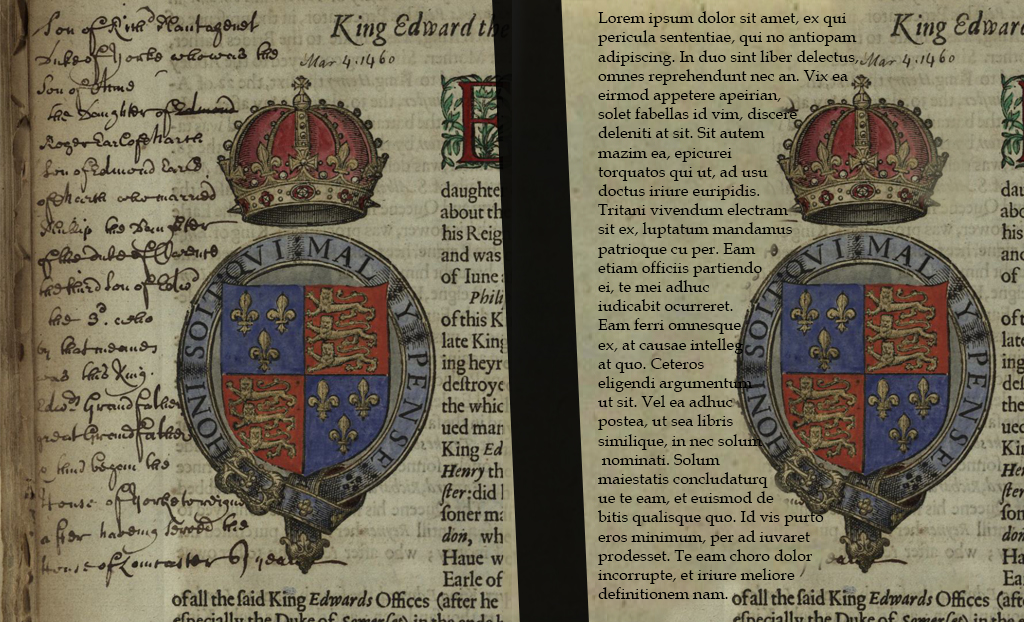 King Edward the
Mar 4. 1460
Son of Rich Plantagenet
Duke of Yorke who was the
Son of Anne
the Daughter of Edmond
Roger Earl of March
Son of Edmond Earle
of March who married
Philip the Daughter
of the Duke of Clarence
the third Son of
the 3d. who
by that meanes
was this King.
Grandfather
great Grandfather
began the
House of Yorke to reigne
after haveing served the
House of Lancaster
HONI SOIT QVI MAL Y PENSE
E
daughte
about th
his Reig
and was
of Iune
Phili
of this K
late King
ing heyr
deſtroye
the whic
ued mar
King Ed
Henry th
ſter: did
ſoner ma
don, wh
Haue w
Earle of
of all the ſaid King Edwards Offices (after he
eſpecially the Duke of Somerſet) in the ende b
Lorem ipsum dolor sit amet, ex qui
pericula sententiae, qui no antiopam
adipiscing. In duo sint liber delectus,
omnes reprehendunt nec an. Vix ea
eirmod appetere apeirian,
solet fabellas id vim, discere
deleniti at sit. Sit autem
mazim ea, epicurei
torquatos qui ut, ad usu
doctus iriure euripidis.
Tritani vivendum electram
sit ex, luptatum mandamus
patrioque cu per. Eam
etiam officiis partiendo
ei, te mei adhuc
iudicabit ocurreret.
Eam ferri omnesque
ex, at causae intelleg
at quo. Ceteros
eligendi argumentum
ut sit. Vel ea adhuc
postea, ut sea libris
similique, in nec solum
nominati. Solum
maiestatis concludaturq
ue te eam, et euismod de
bitis qualisque quo. Id vis purto
eros minimum, per ad iuvaret
prodesset. Te eam choro dolor
incorrupte, et iriure meliore
definitionem nam.
King Edward
Mar 4. 1460
HONI SOIT QVI MAL Y PENSE
dau
abo
his
and
of
of t
late
ing
deſ
the
ued
Kin
Her
ſter
ſon
don
Ha
Ear
of all the ſaid King Edwards Offices (after he
eſpecially the Duke of Somerſet) in the ende b